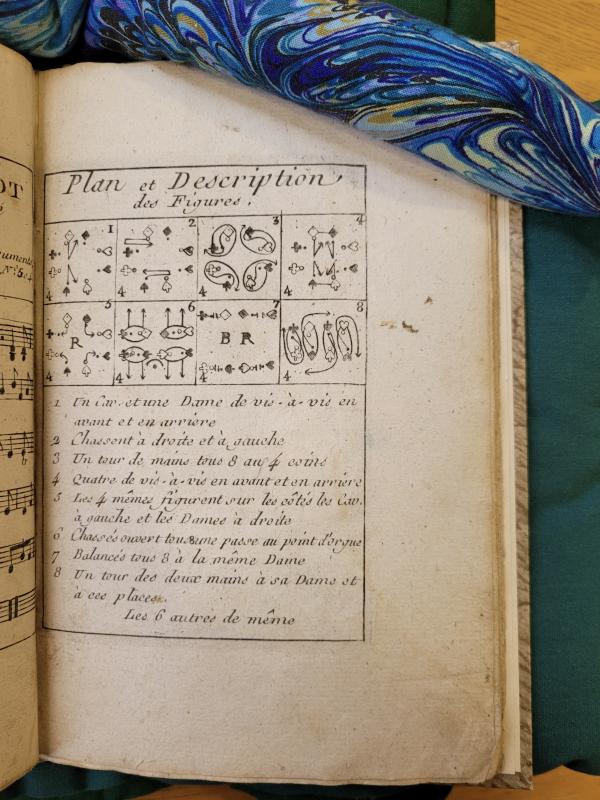 OT
uments
N.º 5 e 4
Plan et Description
des Figures.
1 2 3 4
4 4 4 4
5 6 7 8
R B R
4 4 4 4
1 Un Cav. et une Dame de vis-à-vis en
avant et en arriére
2 Chassent à droite et à gauche
3 Un tour de mains tous 8 aus 4 coins
4 Quatre de vis-à-vis en avant et en arriére
5 Les 4 mêmes figurent sur les côtés les Cav.
à gauche et les Dames à droite
6 Chassés ouvert tous 8 une passe au point d'orgue
7 Balancés tous 8 à la même Dame
8 Un tour des deux mains à sa Dame et
à ces places.
Les 6 autres de même